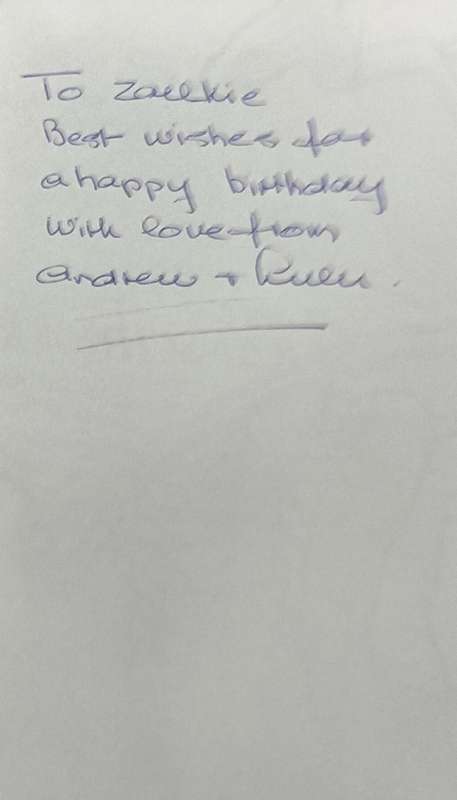 To Zaeekie
Best wishes for
a happy birthday
with love from
Andrew +